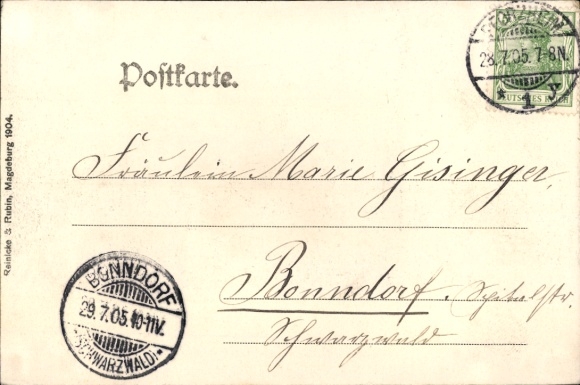 28.7.05.7-8N.
* 1 y
DEUTSCHES REICH
Postkarte.
Reinicke & Rubin, Magdeburg 1904.
Fräulein Marie Gisinger,
Bonndorf, Spitalstr.
Schwarzwald
BONNDORF
29.7.05.10-11V.
(SCHWARZWALD)*